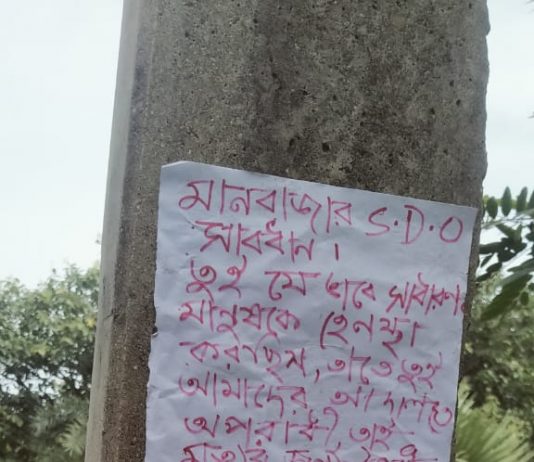 মানবাজার S.D.O
সাবধান ।
তুই যে ভাবে সাধারণ
মানুষকে হেনস্থা
করছিস, তাতে তুই
আমাদের আদালতে
অপরাধী, তাই
মৃত্যুর জন্য